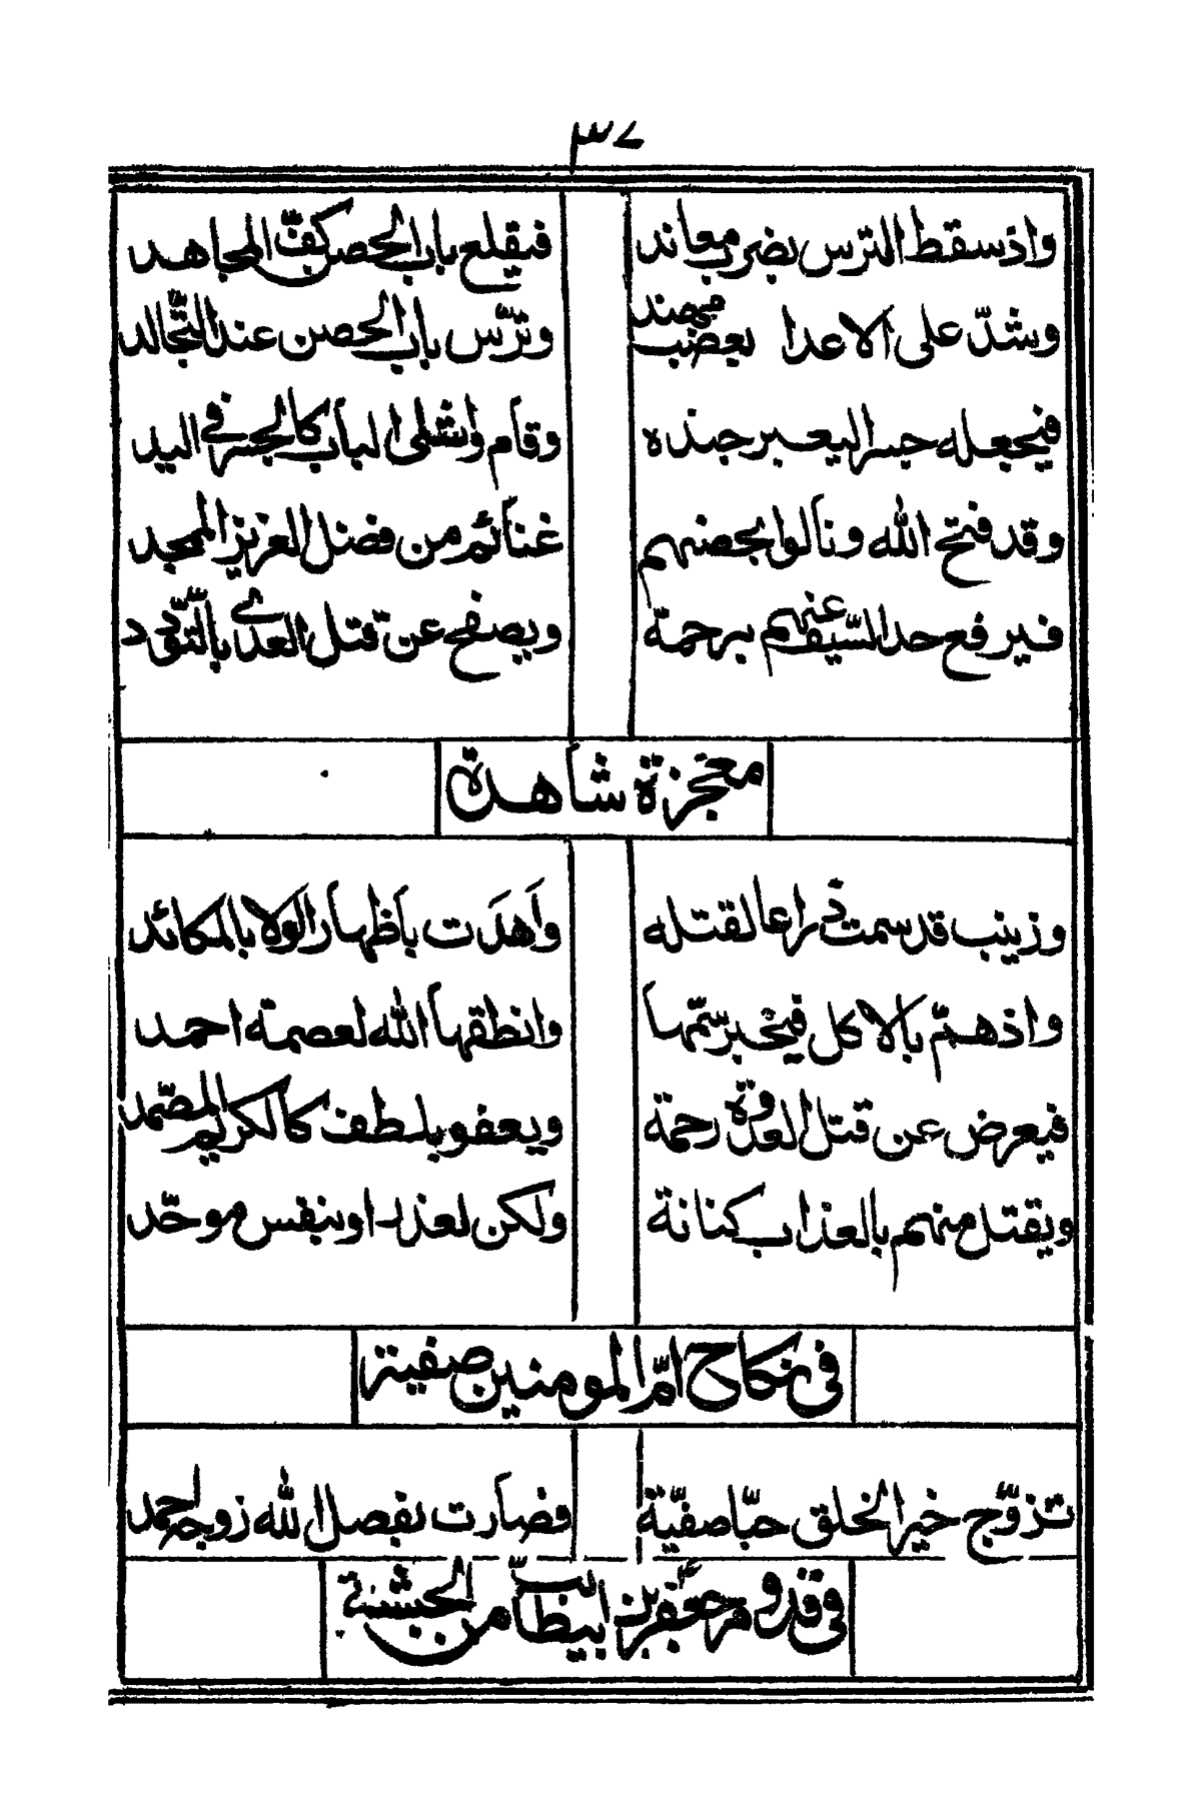 ٣٧
واذ سقط الترس بضرب معاند فيقلع باب الحصن كفّ المجاهد
وشدّ على الاعدا بعضب مهند وترّس باب الحصن عند التّجالد
فيجعله جسرا ليعبر جنده وقام واشلى الباب كالجسر في اليد
وقد فتح الله ونالوا بحصنهم غنائم من فضل العزيز الممجد
فيرفع حد السّيف عنهم برحمة ويصفح عن قتل العدى بالتّودد
معجزة شاهدة
وزينب قد سمت ذراعا لقتله واهدت باظهار الولا بالمكائد
واذ همّ بالاكل فيخبر سمّها وانطقها الله لعصمة احمد
فيعرض عن قتل العدوة رحمة ويعفو بلطف كالكريم المصّمد
ويقتل منهم بالعذاب كنانة ولكن لعذر او بنفس موحّد
فى نكاح امّ المومنين صفية
تزوّج خير الخلق حبّا صفيّة فصارت بفضل الله زوج احمد
فى قدوم جعفر بن ابيطالب من الحبشة